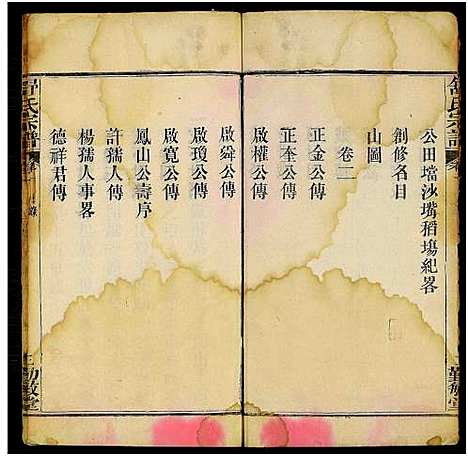 舒氏宗譜
公田壋沙嘴稻場紀畧
創修名目
山圖
卷二
正金公傳
正奎公傳
啟權公傳
啟舜公傳
啟瓊公傳
啟寬公傳
鳳山公壽序
許孺人傳
楊孺人事畧
德祥君傳
舒氏宗譜